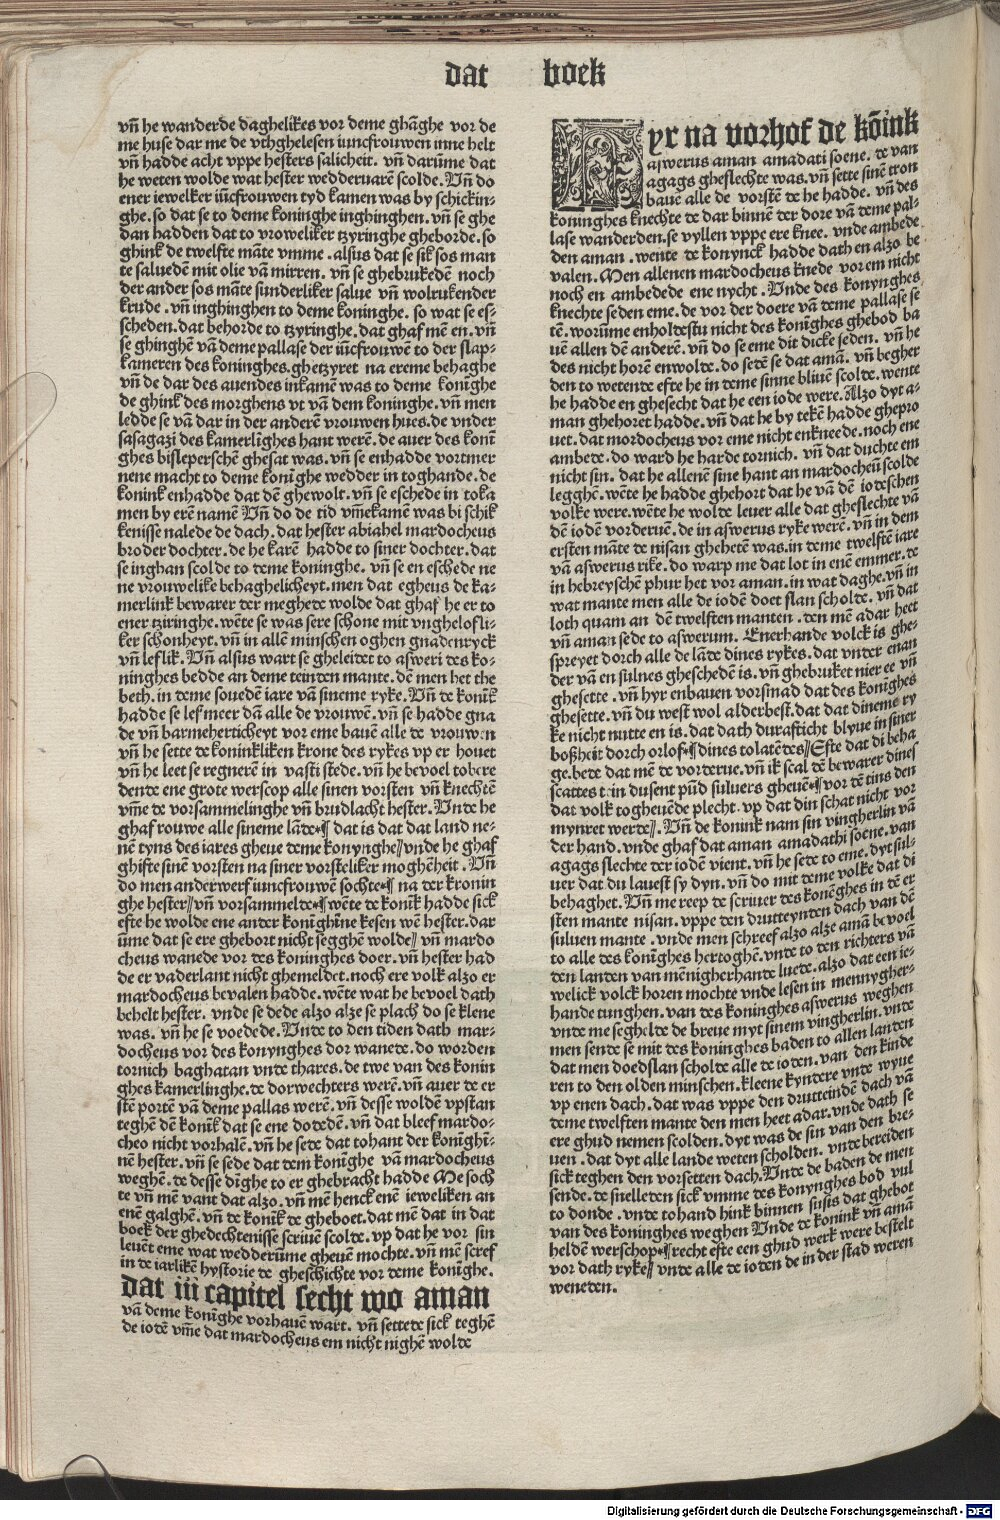 dat boek
vn̄ he wanderde daghelikes vor deme ghāghe vor de
me huse dar me de vthghelesen iuncfrouwen inne helt
vn̄ hadde acht vppe hesters salicheit. vn̄ darūme dat
he weten wolde wat hester wedderuarē scolde. Vn̄ do
ener iewelker iūcfrouwen tyd kamen was by schickin-
ghe. so dat se to deme koninghe inghinghen. vn̄ se ghe
dan hadden dat to vroweliker tzyringhe gheborde. so
ghink de twelfte māte vmme. alsus dat se sik sos man
te saluedē mit olie vā mirren. vn̄ se ghebrukedē noch
der ander sos māte sunderliker salue vn̄ wolrukender
krude. vn̄ inghinghen to deme koninghe. so wat se es-
scheden. dat behorde to tzyringhe. dat ghaf mē en. vn̄
se ghinghē vā deme pallase der iūcfrouwē to der slap-
kameren des koninghes. ghetzyret na ereme behaghe
vn̄ de dar des auendes inkamē was to deme konīghe
de ghink des morghens vt vā dem koninghe. vn̄ men
ledde se vā dar in der anderē vrouwen hues. de vnder
sasagazi des kamerlīghes hant werē. de auer des konī
ghes bisleperschē ghesat was. vn̄ se enhadde vortmer
nene macht to deme konīghe wedder in toghande. de
konink enhadde dat dē ghewolt. vn̄ se eschede in toka
men by erē namē Vn̄ do de tid vm̄ekamē was bi schik
kenisse nalede de dach. dat hester abiahel mardocheus
broder dochter. de he karē hadde to siner dochter. dat
se inghan scolde to deme koninghe. vn̄ se en eschede ne
ne vrouwelike behaghelicheyt. men dat egheus de ka-
merlink bewarer der meghede wolde dat ghaf he er to
ener tziringhe. wēte se was sere schone mit vngheloфli-
ker schonheyt. vn̄ in allē minschen oghen gnadenryck
vn̄ leflik. Vn̄ alsus wart se gheleidet to asweri des ko-
ninghes bedde an deme teinden mante. dē men het the
beth. in deme souedē iare vā sineme ryke. Vn̄ de konīk
hadde se lef meer dā alle de vrouwē. vn̄ se hadde gna
de vn̄ barmeherticheyt vor eme bauē alle de vrouwen
vn̄ he sette de koninkliken krone des rykes vp er houet
vn̄ he leet se regnerē in vasti stede. vn̄ he bevoel tobere
dende ene grote werscop alle sinen vorsten vn̄ knechtē
vm̄e de vorsammelinghe vn̄ brudlacht hester. Vnde he
ghaf rouwe alle sineme lāde dat is dat dat land ne-
nē tyns des iares gheue deme konynghe vnde he ghaf
ghifte sinē vorsten na siner vorsteliker moghēheit. Vn̄
do men anderwerf iuncfrouwē sochte na der kronin
ghe hester vn̄ vorsammelde wēte de konīk hadde sick
efte he wolde ene ander konīghīne kesen wē hester. dar
ūme dat se ere ghebort nicht segghē wolde vn̄ mardo
cheus wanede vor des koninghes doer. vn̄ hester had
de er vaderlant nicht ghemeldet. noch ere volk alzo er
mardocheus bevalen hadde. wēte wat he bevoel dath
behelt hester. vnde se dede alzo alze se plach do se klene
was. vn̄ he se voedede. Vnde to den tiden dath mar-
docheus vor des konynghes dor wanede. do worden
tornich baghatan vnde thares. de twe van des konin
ghes kamerlinghe. de dorwechters werē. vn̄ auer de er
stē portē vā deme pallas werē. vn̄ desse woldē vpstan
teghē dē konīk dat se ene dodedē. vn̄ dat bleef mardo-
cheo nicht vorhalē. vn̄ he sede dat tohant der konīghī-
nē hester. vn̄ se sede dat dem konīghe vā mardocheus
weghē. de desse dīghe to er ghebracht hadde Me soch
te vn̄ mē vant dat alzo. vn̄ mē henck enē ieweliken an
enē galghē. vn̄ de konīk de gheboet. dat mē dat in dat
boek der ghedechtenisse scriuē scolde. vp dat he vor sin
leuēt eme wat wedderūme gheuē mochte. vn̄ mē scref
in de iarlikē hystorie de gheschichte vor deme konīghe.
dat iii capitel secht wo aman
vā deme konīghe vorhauē wart. vn̄ settede sick teghē
de iodē vm̄e dat mardocheus em nicht nighē wolde
Hyr na vorhof de kōink
aswerus aman amadati soene. de van
agags gheslechte was. vn̄ sette sinē tron
bauē alle de vorstē de he hadde. vn̄ des
koninghes knechte de dar binnē der dore vā deme pal-
lase wanderden. se vyllen vppe ere knee. vnde ambede
den aman. wente de konynck hadde dath en alzo be
valen. Men allenen mardocheus knede vor em nicht
noch en ambedede ene nycht. Vnde des konynghes
knechte seden eme. de vor der doere vā deme pallase se
tē. worūme enholdestu nicht des konīghes ghebod ba
uē allen dē anderē. vn̄ do se eme dit dicke seden. vn̄ he
des nicht horē enwolde. do sedē se dat amā. vn̄ begher
den to wetende efte he in deme sinne bliuē scolde. wente
he hadde en ghesecht dat he een iode were. Alzo dyt a-
man ghehoret hadde. vn̄ dat he by tekē hadde ghepro
uet. dat mordocheus vor eme nicht enkneede. noch ene
ambede. do ward he harde tornich. vn̄ dat duchte em
nicht sin. dat he allenē sine hant an mardocheū scolde
legghē. wēte he hadde ghehort dat he vā dē iodeschen
volke were. wēte he wolde leuer alle dat gheslechte vā
dē iodē vorderuē. de in aswerus ryke werē. vn̄ in dem
ersten māte de nisan ghehetē was. in deme twelftē iare
vā aswerus rike. do warp me dat lot in enē emmer. de
in hebreyschē phur het vor aman. in wat daghe. vn̄ in
wat mante men alle de iodē doet slan scholde. vn̄ dat
loth quam an dē twelften manten. den mē adar heet
vn̄ aman sede to aswerum. Enerhande volck is ghe-
spreyet dorch alle de lāde dines rykes. dat vnder enan
der vā en sulnes ghescheden is. vn̄ ghebruket nier ee vn̄
ghesette. vn̄ hyr enbauen vorsmad dat des konīghes
ghesette. vn̄ du west wol alderbest. dat dat dinems ry
ke nicht nutte en is. dat dath durafticht blyue in siner
boßheit dorch orlof dines tolatēdes Efte dat di beha
ge. bede dat mē de vorderue. vn̄ ik scal dē bewarer dines
scattes tein dusent pūd suluers gheuē vor dē tins den
dat volk togheuēde plecht. vp dat din schat nicht vor
mynret werde. Vn̄ de konink nam sin vingherlin vā
der hand. vnde ghaf dat aman amadathi soene. van
agags slechte der iodē vient. vn̄ he sede to eme. dyt sul-
uer dat du lauest sy dyn. vn̄ do mit deme volke dat di
behaghet. Vn̄ me reep de scriuer des konēghes in dē er
sten mante nisan. vppe den drutteynden dach van dē
suluen mante. vnde men schreef alzo alze amā bevoel
to alle des konīghes hertoghē. vnde to den richters vā
den landen van mēnigherhande luede. alzo dat een ie-
welick volck horen mochte vnde lesen in mennygher-
hande tunghen. van des koninghes aswerus weghen
vnde me seghelde de breue myt sinem vingherlin. vnde
men sende se mit des koninghes baden to allen landen
dat men doedslan scholde alle de ioden. van den kinde
ren to den olden minschen. kleene kyndere vnde wyue
vp enen dach. dat was vppe den drutteinden dach vā
deme twelften mante den men heet adar. vnde dath se
ere ghud nemen scolden. dyt was de sin van den bre-
uen. dat dyt alle lande weten scholden. vnde bereiden
sick teghen den vorsetten dach. Vnde de baden de men
sende. de snelleden sick vmme des konynghes bod vul
to donde. vnde tohand hink binnen susis dat ghebot
van des koninghes weghen Vnde de konink vn̄ amā
heldē werschop recht efte een ghud werk were bestelt
vor dath ryke vnde alle de ioden de in der stad weren
weneden.
Digitalisierung gefördert durch die Deutsche Forschungsgemeinschaft - DFG